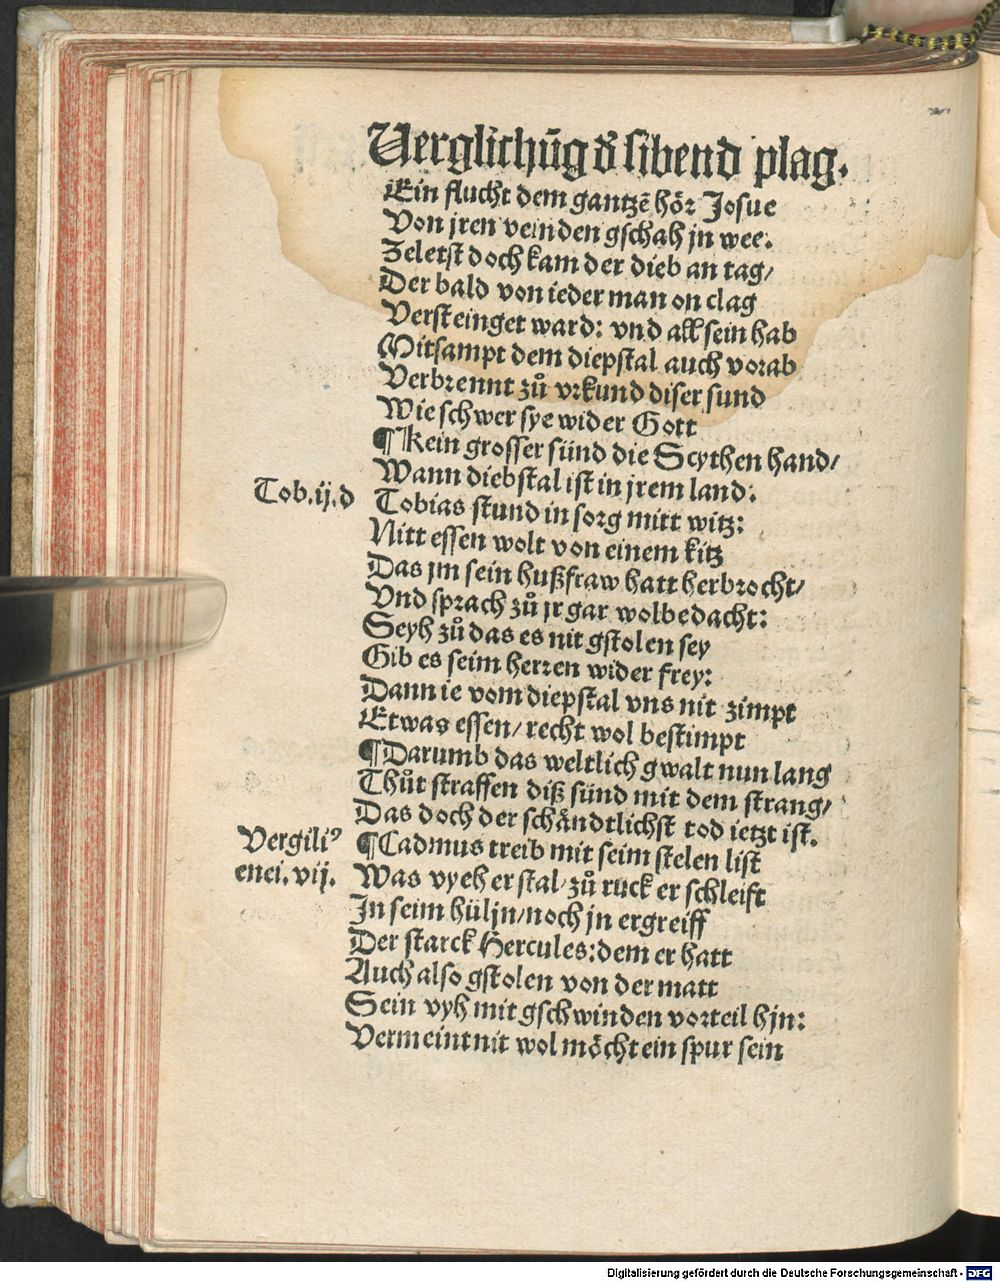 Verglichūg d̓ sibend plag.
Ein flucht dem gantzē hoͤr Josue
Von jren veinden gschah jn wee.
Zeletst doch kam der dieb an tag/
Der bald von ieder man on clag
Versteinget ward: vnd all sein hab
Mitsampt dem diepstal auch vorab
Verbrennt zů vrkund diser sund
Wie schwer sye wider Gott
¶Kein grosser sünd die Scythen hand/
Wann diebstal ist in jrem land:
Tob.ij.d
Tobias stund in sorg mitt witz:
Nitt essen wolt von einem kitz
Das jm sein hußfraw hatt herbrocht/
Vnd sprach zů jr gar wolbedacht:
Seyh zů das es nit gstolen sey
Gib es seim herren wider frey:
Dann ie vom diepstal vns nit zimpt
Etwas essen/ recht wol bestimpt
¶Darumb das weltlich gwalt nun lang
Thůt straffen diß sünd mit dem strang/
Das doch der schaͤndtlichst tod ietzt ist.
Vergiliꝰ
enei. vij.
¶Cadmus treib mit seim stelen list
Was vyeh er stal/ zů ruck er schleift
In seim hül jn/ noch jn ergreiff
Der starck Hercules: dem er hatt
Auch also gstolen von der matt
Sein vyh mit gschwinden vorteil hjn:
Vermeint nit wol moͤcht ein spur sein
Digitalisierung gefördert durch die Deutsche Forschungsgemeinschaft - DFG